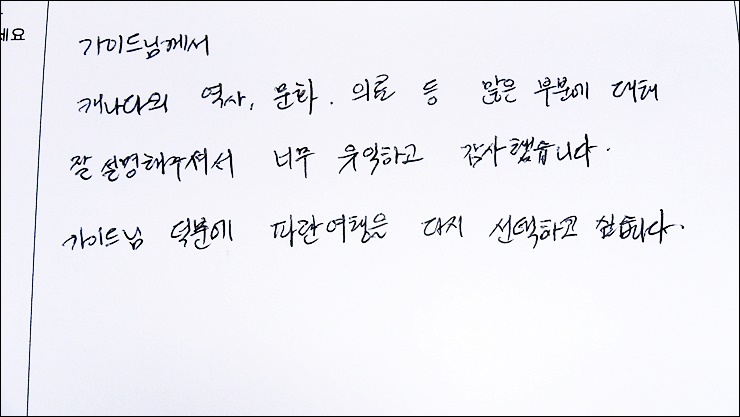 세요
가이드님께서
캐나다의 역사, 문화. 의료 등 많은 부분에 대해
잘 설명해주셔서 너무 유익하고 감사했습니다.
가이드님 덕분에 파란여행을 다시 선택하고 싶습니다.